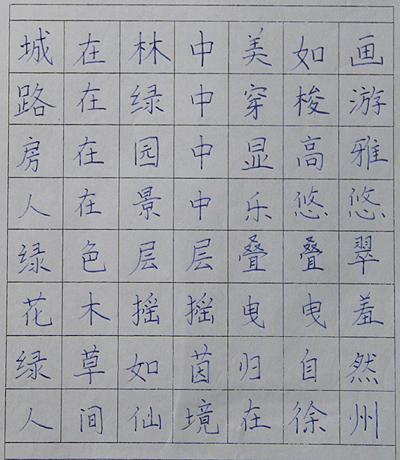 城在林中美如画
路在绿中穿梭游
房在园中显高雅
人在景中乐悠悠
绿色层层叠叠翠
花木摇摇曳曳羞
绿草如茵归自然
人间仙境在徐州